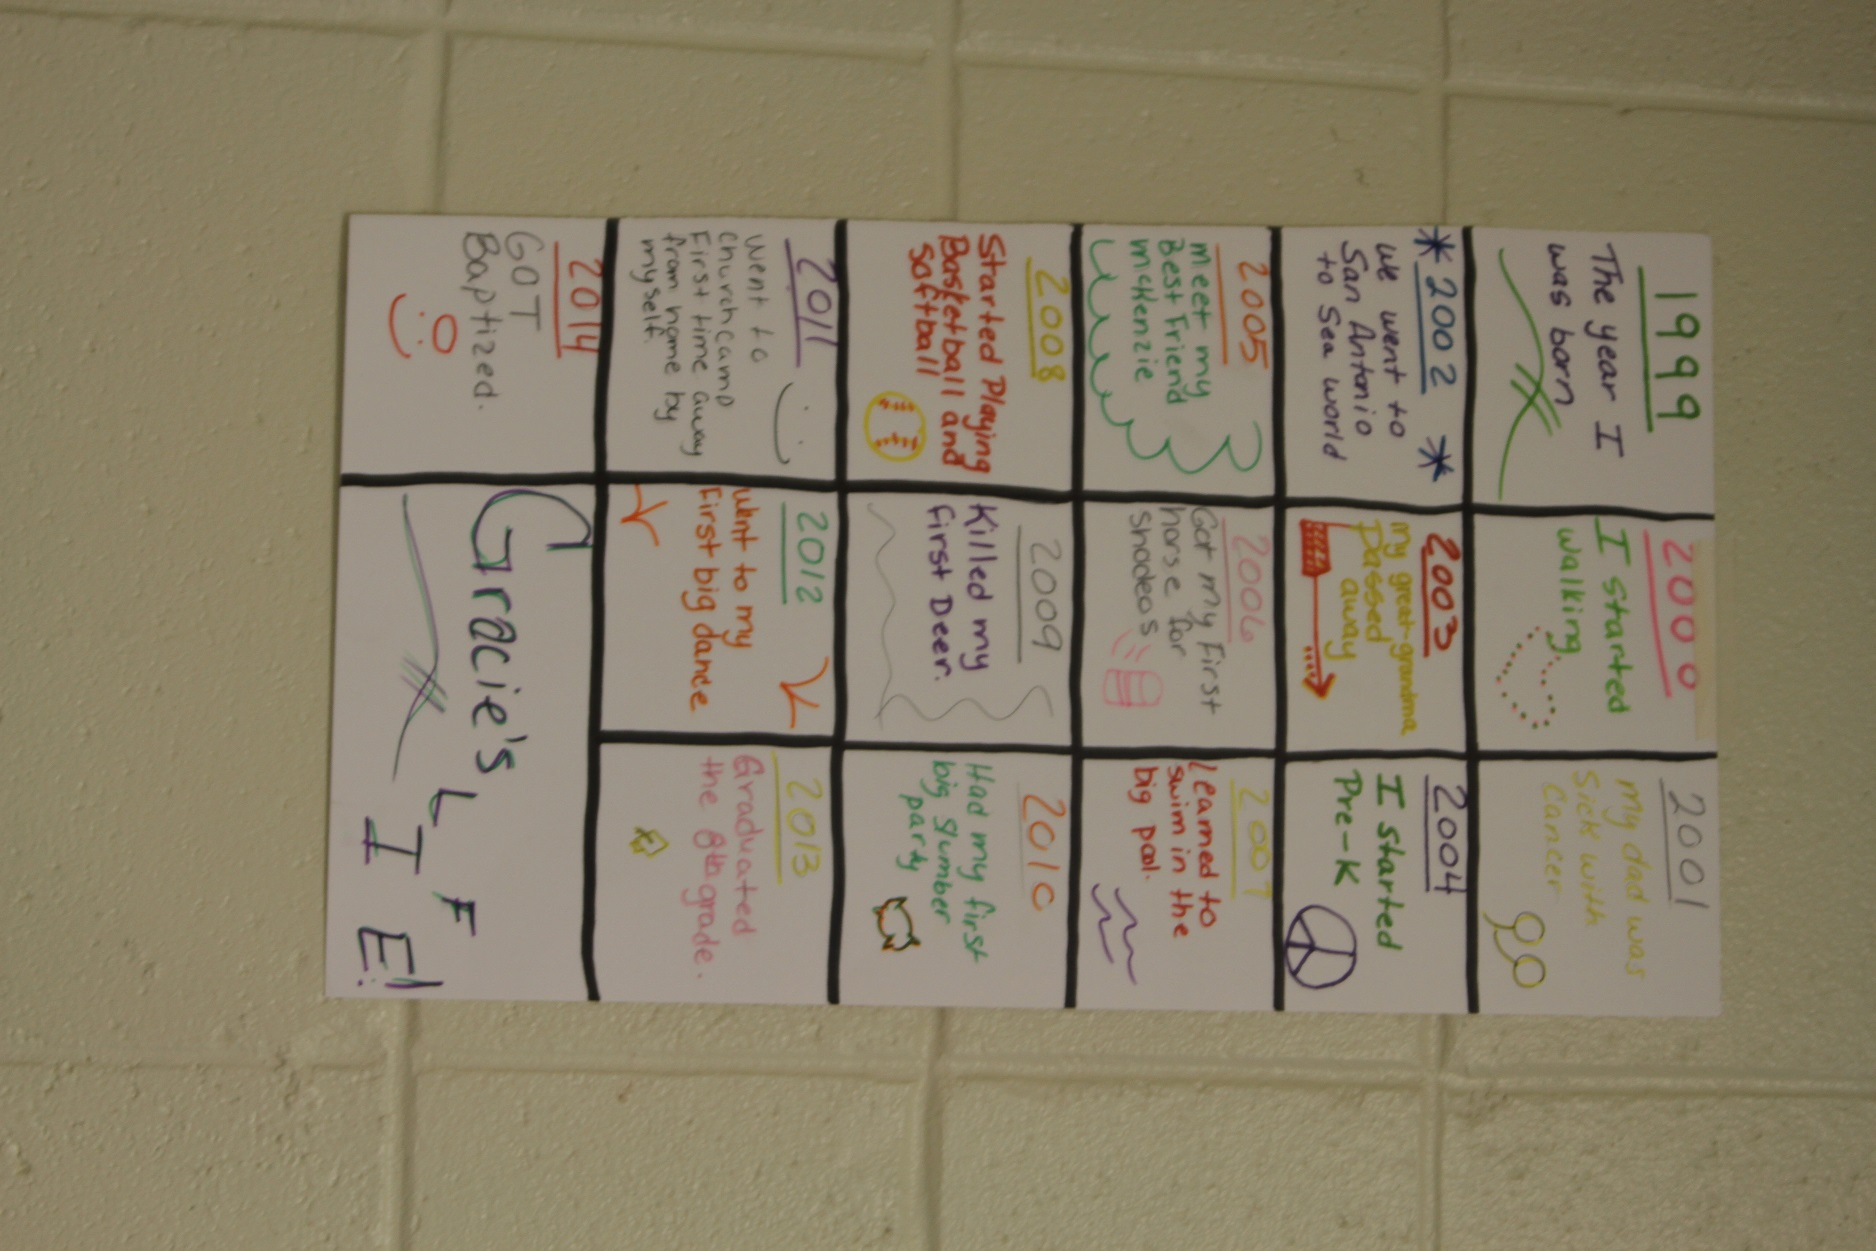 1999
The year I
was born
2000
I started
walking
2001
my dad was
sick with
cancer
*2002 *
we went to
San Antonio
to Sea world
2003
my great-grandma
passed
away
2004
I started
Pre-K
2005
meet my
Best Friend
mckenzie
2006
Got my First
horse for
2007
Learned to
swim in the
big pool.
2008
Started Playing
Basketball and
Softball
2009
Killed my
first Deer.
2010
Had my first
big slumber
party
2011
went to
church camp
First time away
from home by
myself.
2012
went to my
First big dance
2013
Graduated
the grade.
2014
GOT
Baptized.
Gracie's
LIFE!